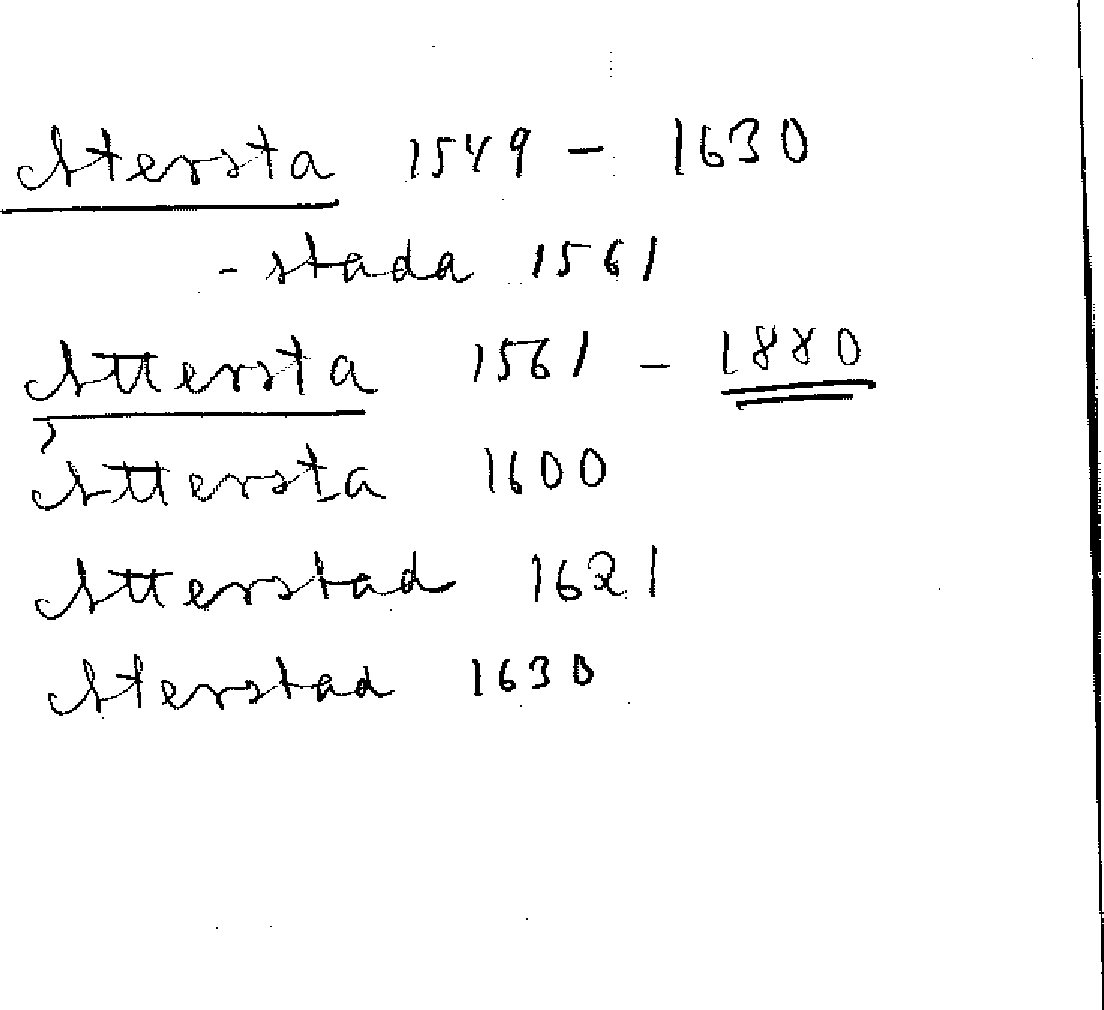 Atersta 1549 – 1630
- stada 1561
Attersta 1561 – 1880
Åttersta 1600
Atterstad 1621
Aterstad 1630